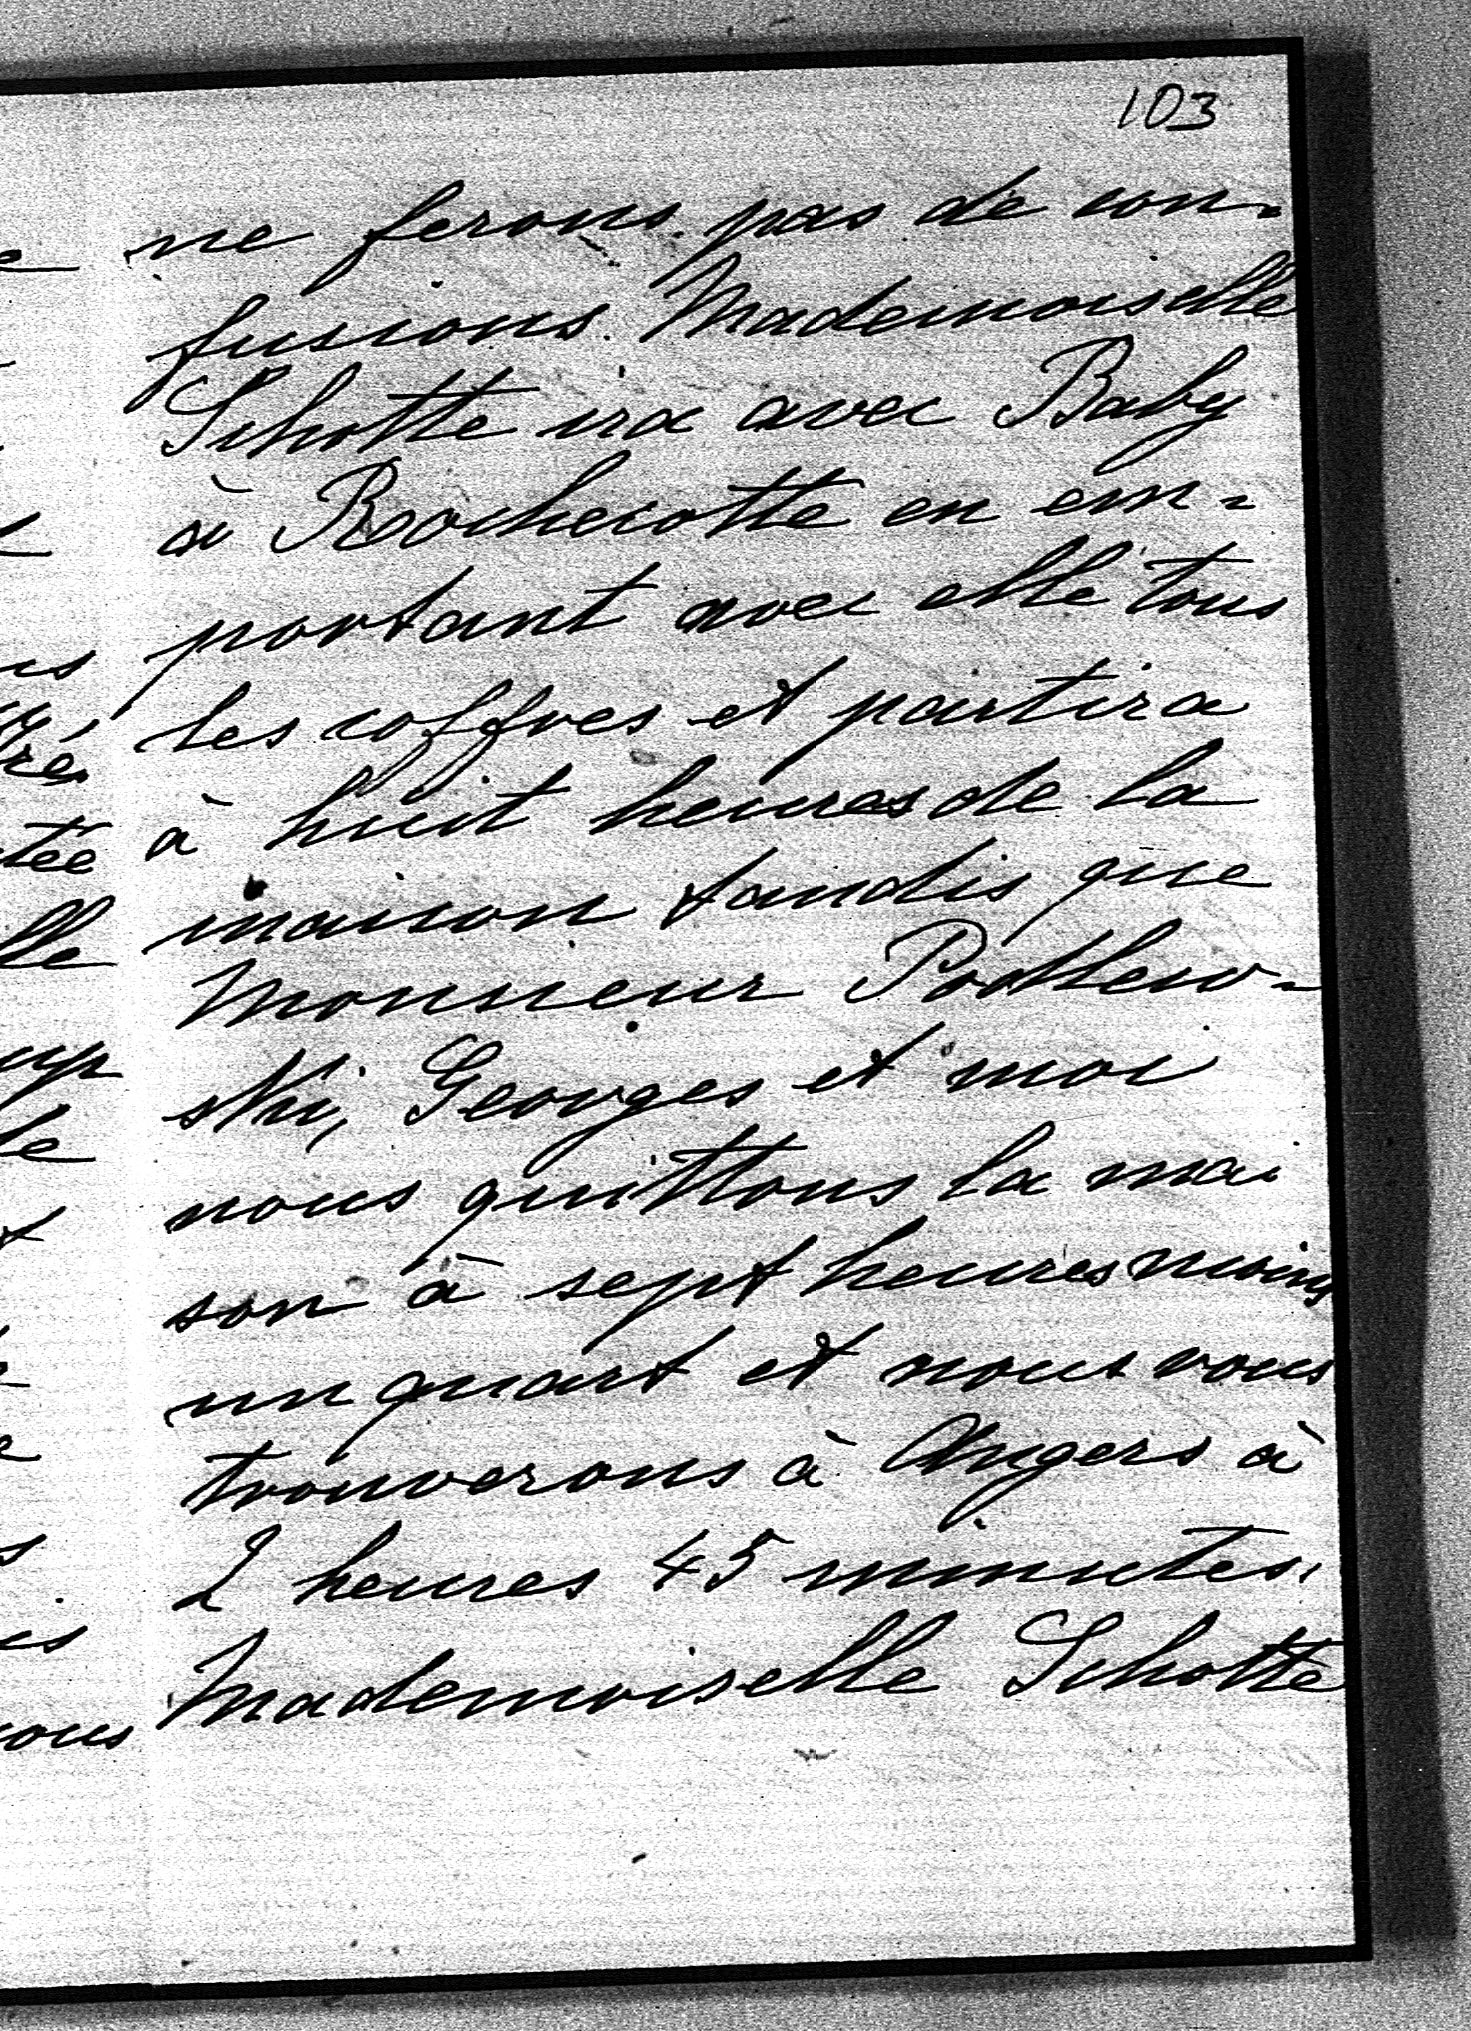 103
ne ferons pas de con-
fusions. Mademoiselle
Schotte ira avec Baby
à Rochecotte en em-
portant avec elle tous
les coffres et partira
à huit heures de la
maison tandis que
Monsieur Podlew-
ski, Georges et moi
nous quittons la mai
son à sept heures moins
un quart et nous vous
trouverons à Angers à
2 heures 45 minutes.
Mademoiselle Schotte